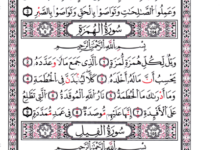 وَعَمِلُوا۟ ٱلصَّـٰلِحَـٰتِ وَتَوَاصَوْا۟ بِٱلْحَقِّ وَتَوَاصَوْا۟ بِٱلصَّبْرِ ٣
سُورَةُ الهُمَزَةِ
بِسْمِ ٱللَّهِ ٱلرَّحْمَـٰنِ ٱلرَّحِيمِ
وَيْلٌ لِّكُلِّ هُمَزَةٍ لُّمَزَةٍ ١ ٱلَّذِى جَمَعَ مَالًا وَعَدَّدَهُۥ ٢
يَحْسَبُ أَنَّ مَالَهُۥٓ أَخْلَدَهُۥ ٣ كَلَّا ۖ لَيُنۢبَذَنَّ فِى ٱلْحُطَمَةِ ٤
وَمَآ أَدْرَىٰكَ مَا ٱلْحُطَمَةُ ٥ نَارُ ٱللَّهِ ٱلْمُوقَدَةُ ٦ ٱلَّتِى تَطَّلِعُ
عَلَى ٱلْأَفْـِٔدَةِ ٧ إِنَّهَا عَلَيْهِم مُّؤْصَدَةٌ ٨ فِى عَمَدٍ مُّمَدَّدَةٍۭ ٩
سُورَةُ الفِيلِ
بِسْمِ ٱللَّهِ ٱلرَّحْمَـٰنِ ٱلرَّحِيمِ